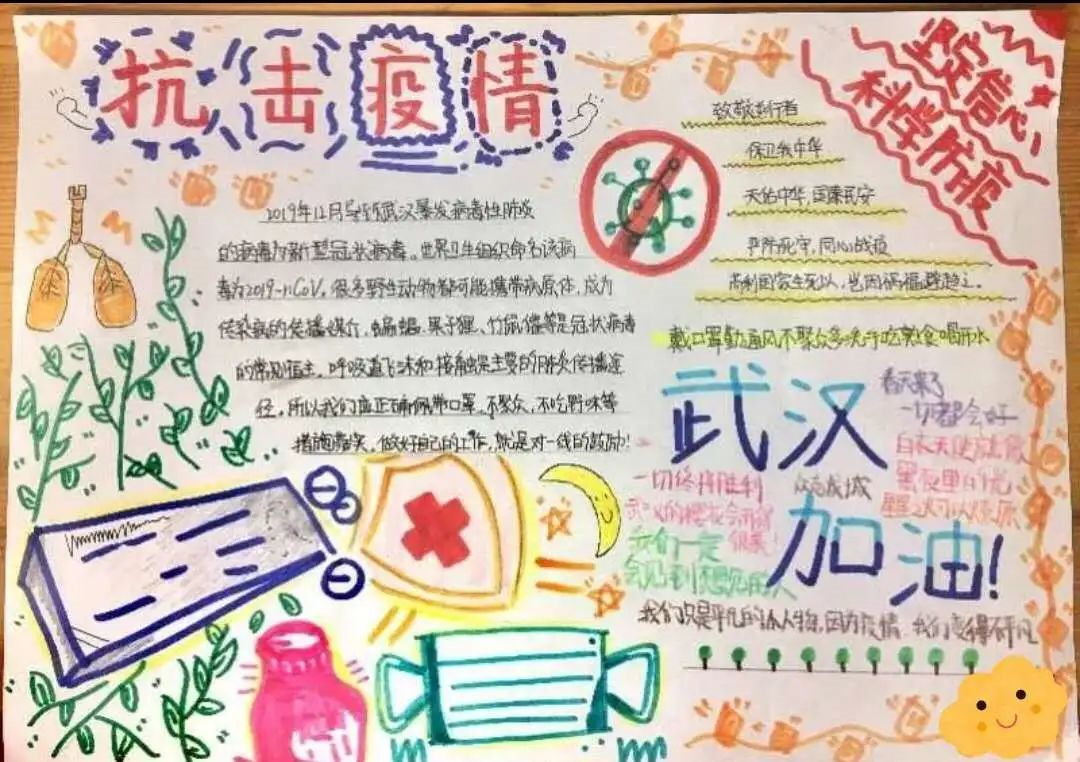 抗击疫情
坚定信心
科学防疫
致敬逆行者
保卫我中华
天佑中华,国泰民安
严防死守,同心战疫
苟利国家生死以,岂因祸福避趋之。
戴口罩勤通风不聚众多洗手吃熟食喝开水
2019年12月 武汉暴发病毒性肺炎
的病毒为新型冠状病毒。世界卫生组织命名该病
毒为2019-nCoV。很多野生动物都可能携带病原体,成为
传染病的传播媒介,蝙蝠、果子狸、竹鼠、獾等是冠状病毒
的常见宿主。呼吸道飞沫和接触是主要的肺炎传播途
径。所以我们应正确佩带口罩、不聚众、不吃野味等
措施 做好自己的工作,就是对一线的鼓励!
武汉
加油!
春天来了
一切都会好
白衣天使
黑夜里的光
星星之火可以燎原
众志成城
一切终将胜利
武汉的樱花会开得
很美!
我们一定
会见到想见的人
我们只是平凡的小人物,因为疫情,我们变得不平凡